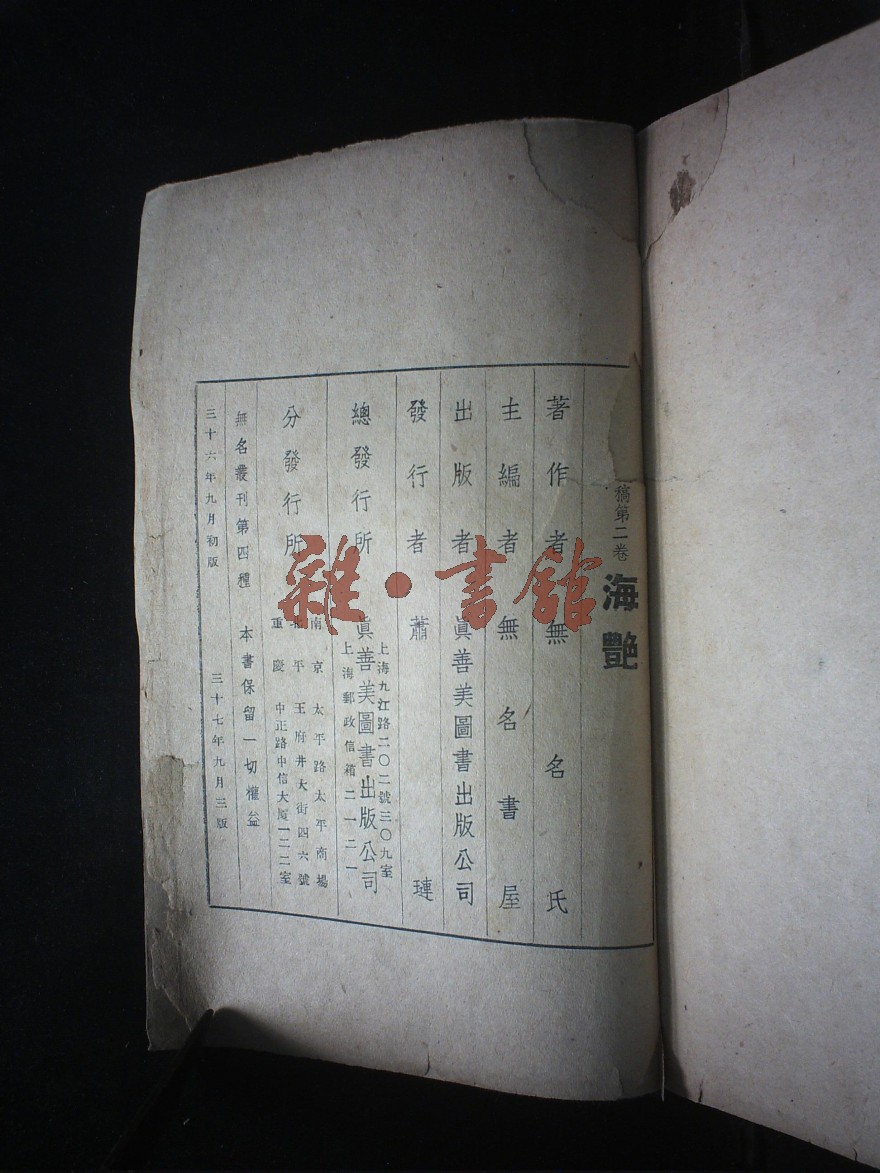 稿第二卷 海艷
著作者 無名氏
主編者 無名書屋
出版者 眞善美圖書出版公司
發行者 蕭璉
總發行所 眞善美圖書出版公司
上海九江路二〇二號三〇九室
上海郵政信箱二一二一
分發行所
南京 太平路太平商場
北平 王府井大街四六號
重慶 中正路中信大廈一二二室
無名叢刊第四種 本書保留一切權益
三十六年九月初版 三十七年九月三版
雜·書館